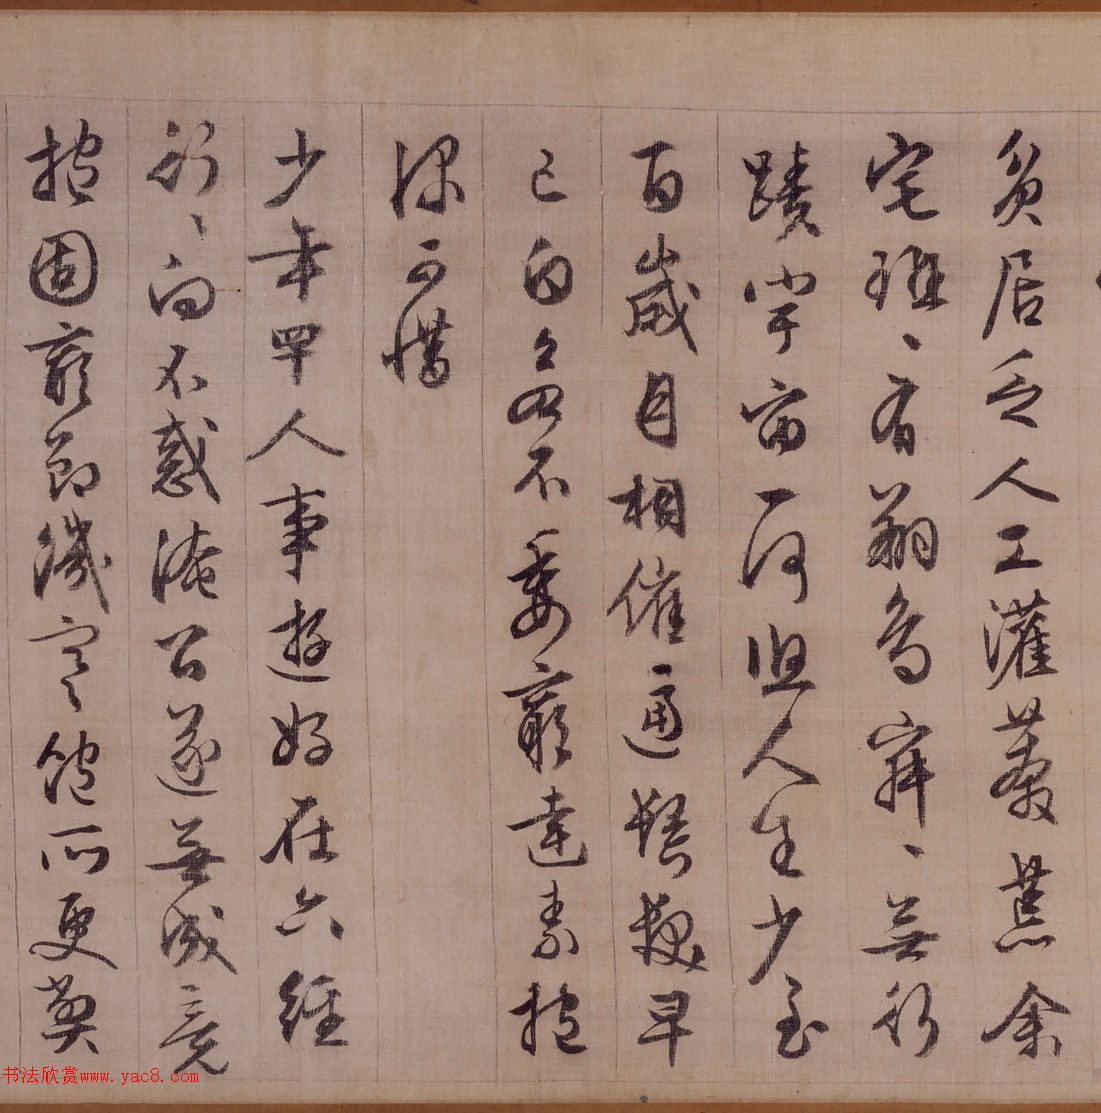 貧居乏人工灌叢荒余
宅班〻有翔鳥寂〻無行
蹟宇宙一何人生少至
百歲月相催逼鬢髮早
已白若不委窮達素抱
深可惜
少年罕人事遊好在六經
行〻向不惑淹留遂無成竟
抱固窮節饑寒飽所更弊
书法欣赏www.yac8.com